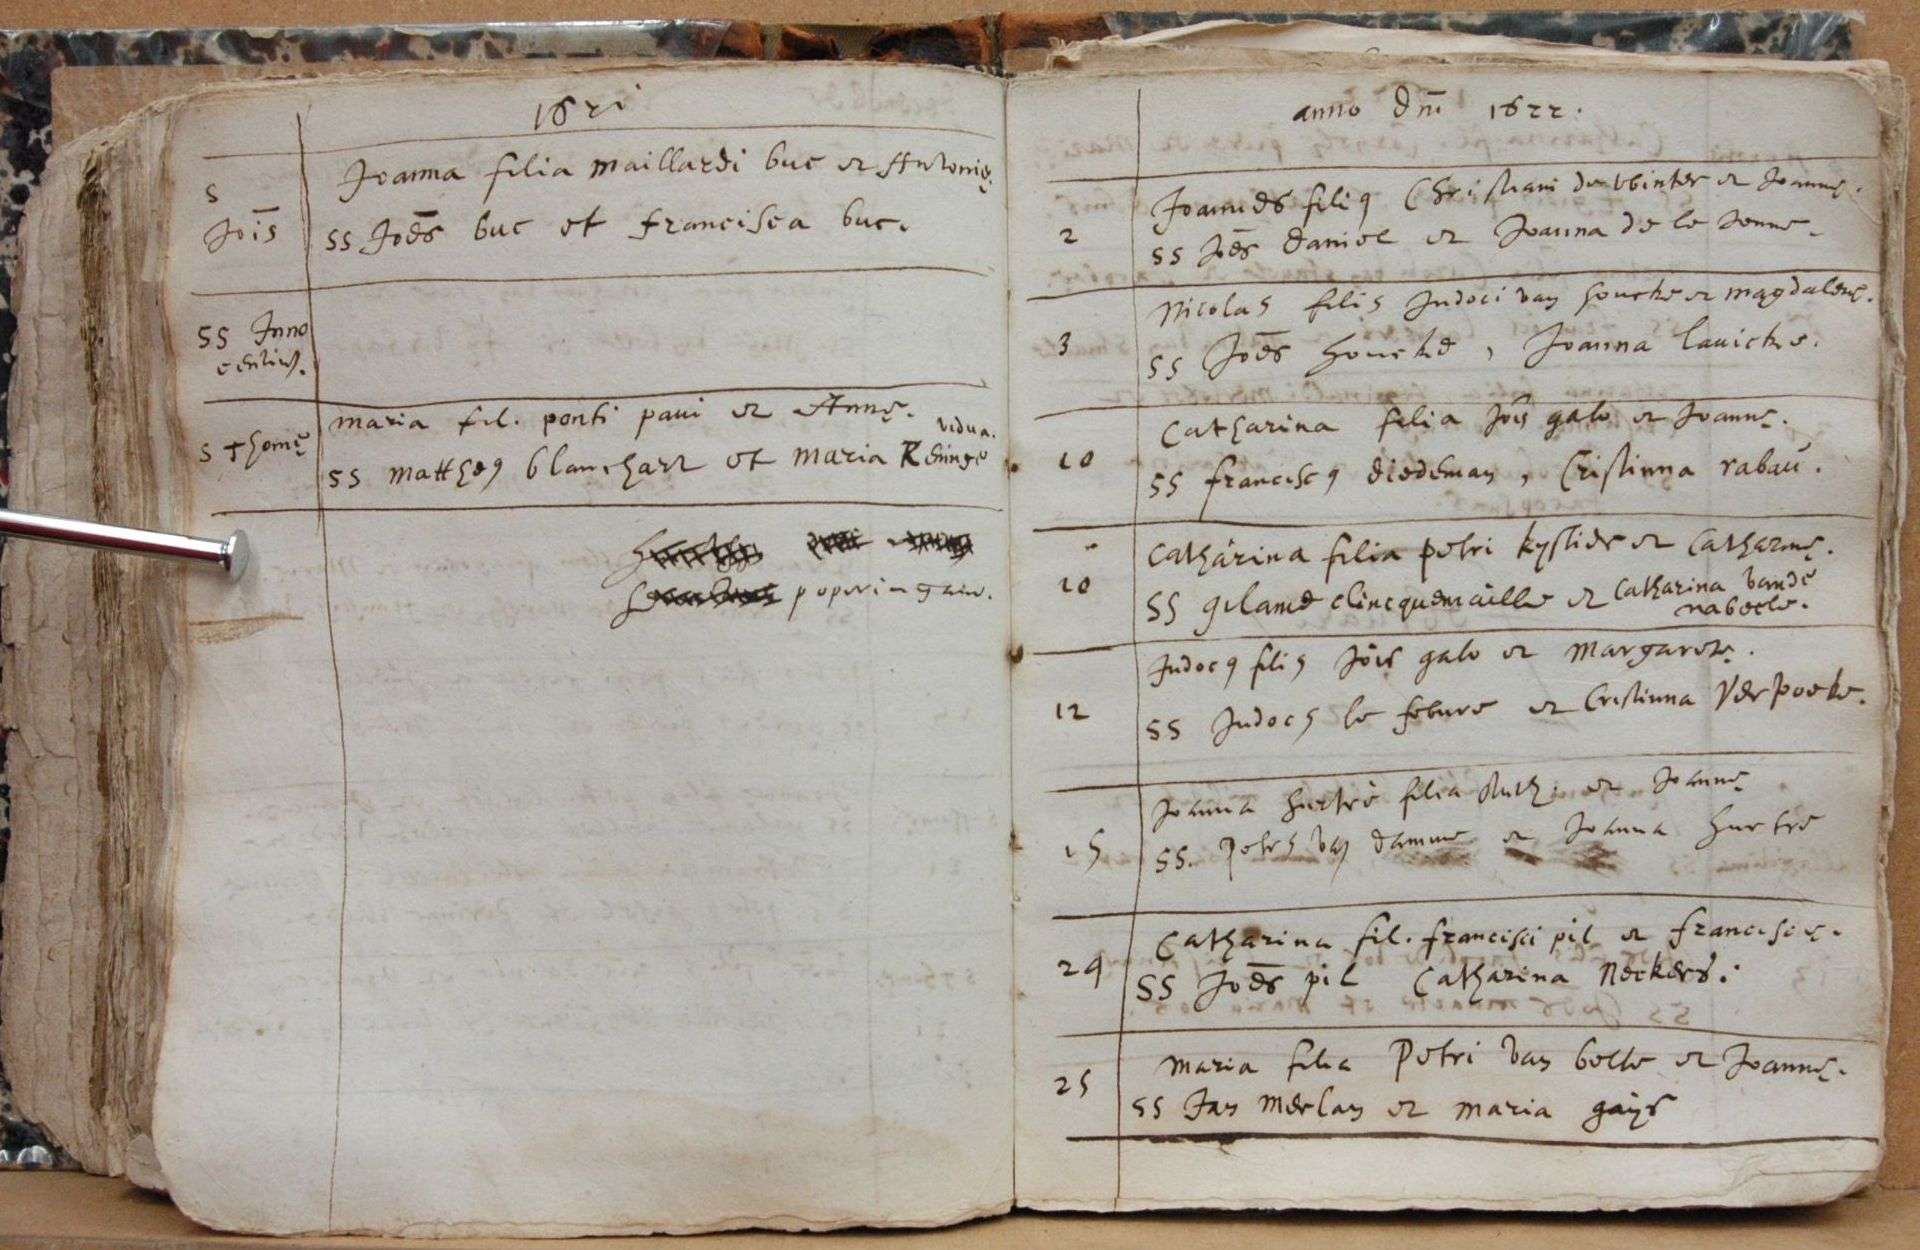 1621
S Jois
Joanna filia maillardi buc et Antonię.
SS Joes buc et francisca buc.
SS Inno
centium.
S Thomę
maria fil. ponti paui et Annę.
vidua.
SS mattheq blanchart et maria Reninge
poperingaw.
anno dni 1622.
2
Joannes filiq Christiani de Winter et Joannę.
SS Joes daniel et Joanna de le
3
Nicolas filis Judoci van houcke et magdalenę.
SS Joes houcke, Joanna lauicke.
10
Catharina filia Jois galo et Joannę.
SS franciscq diedeman, Cristinna rabau.
10
Catharina filia petri et Catharinę.
SS gilame clincquemaille et Catharina vande
naboele.
12
Judocq filis Jois galo et Margaretę.
SS Judocs le febure et Cristinna Verpoeke.
15
Joanna hurtre filia et Joannę
SS. petrs van damme et Joanna hurtre
24
Catharina fil. francisci pil et franciscę.
SS Joes pil Catharina Neckers.
25
maria filia Petri van belle et Joannę.
SS Jan merlan et maria gays